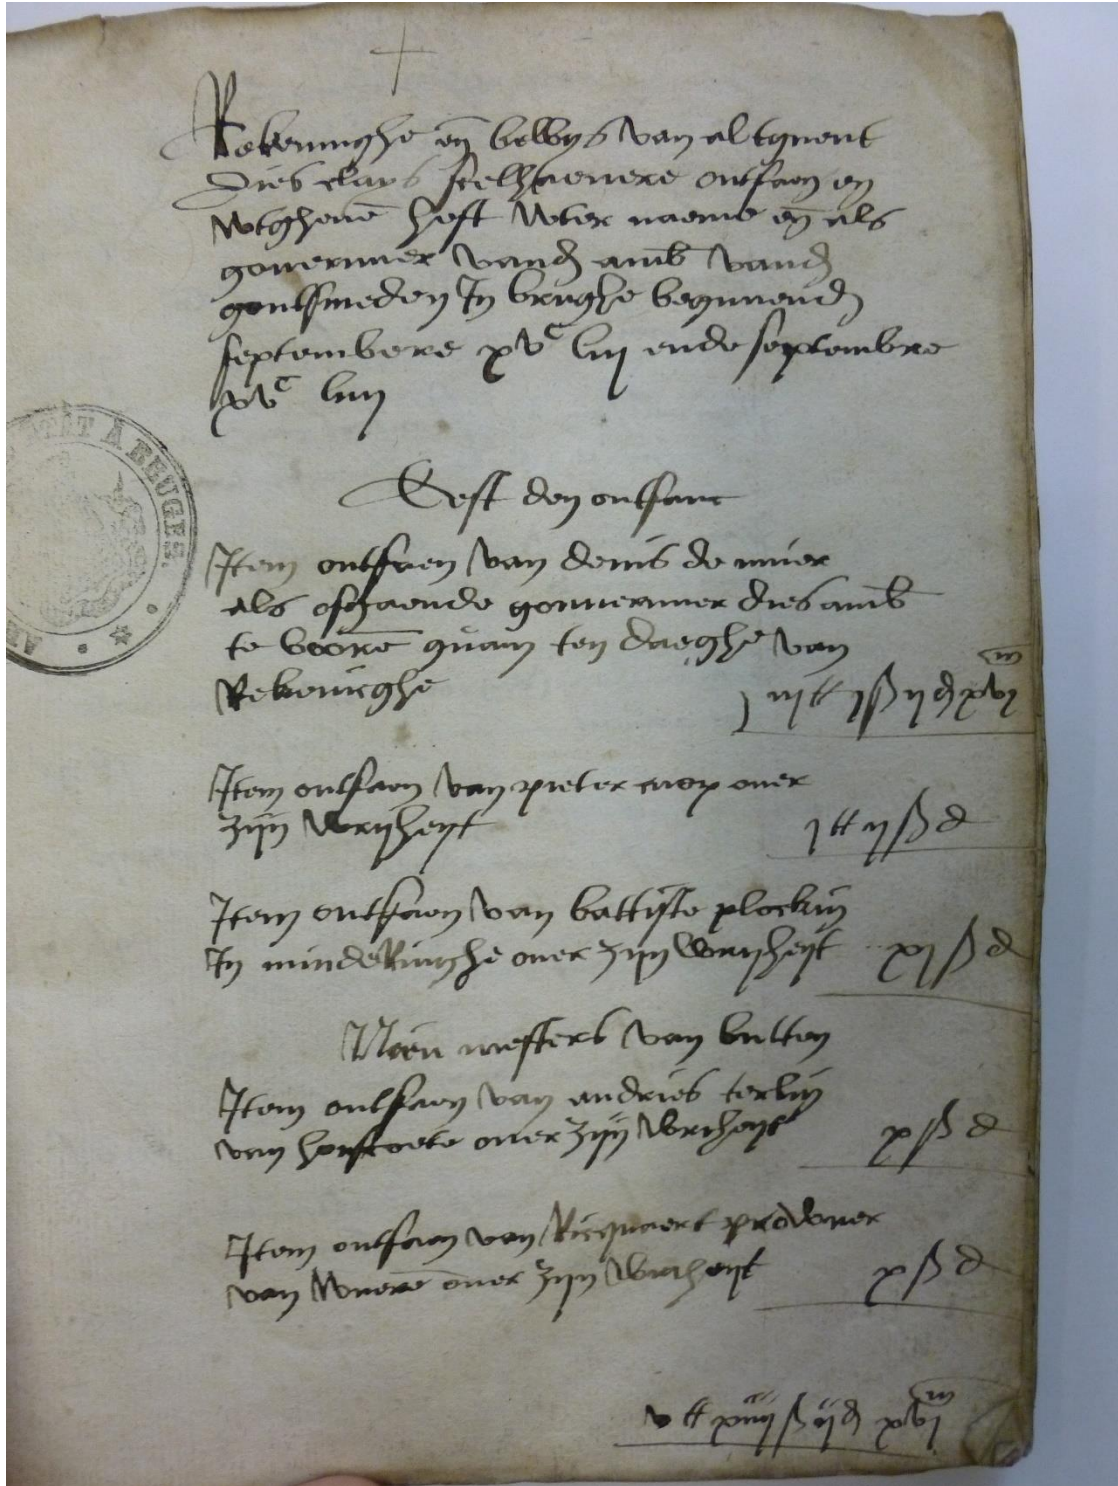 Rekeninghe en̄ bewys van al tguent
dies clays ontfaen en
wtghevē heft wter naeme en̄ als
gouverneur vand amb vand
goutsmeden In brugghe beginnend
septembere xvc liij ende septembre
xvc liiij
Eest den ontfanc
Item ontfaen van denis de muer
als ofgaende gouverneur dies amb
te voorē quam ten daeghe van
Rekeninghe iij lb j ß ij d xvj m
Item ontfaen van pieter over
zijn vrijheyt j lb ij ß d
Item ontfaen van battiste plockuy
In minderinghe over zijn vrijheyt xj ß d
Meesters van butten
Item ontfaen van andries terlin
van honscoete over zijn vriheyt x ß d
Item ontfaen van Ricquaert
van vuerē over zijn vriheyt x ß d
v lb xiiij ß ij d xvj m
A BRUGES.